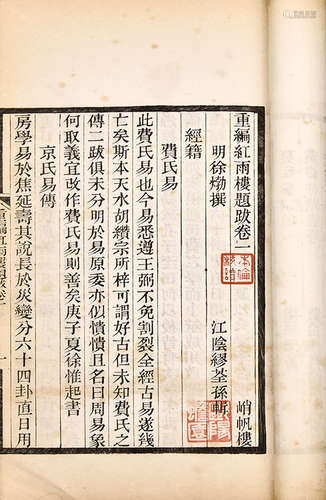 重編紅雨樓題跋卷一
峭帆樓
明徐𤊹撰
江陰繆荃孫輯
經籍
費氏易
此費氏易也今易悉遵王弼不免割裂全經古易遂幾
亡矣斯本天水胡纘宗所梓可謂好古但未知費氏之
傳二跋俱未分明於易原委亦似憒憒且名曰周易象
何取義宜改作費氏易則善矣庚子夏徐惟起書
京氏易傳
房學易於焦延壽其說長於災變分六十四卦直日用